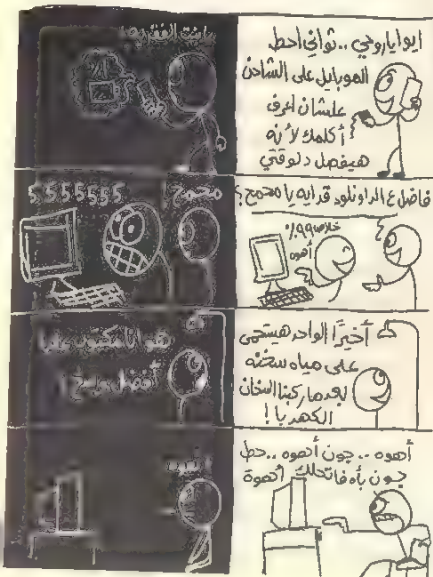 ايوا ياروحي .. ثواني احط
الموبايل على الشاحن
علشان اعرف
أكلمك لأنه
هيفصل دلوقتي
فاضل ع الداونلود قد ايه يا محمح؟
خلاص ٩٩٪
أهوه
محمح
5555555
أخيرًا الواحد هيستحمى
على مياه سخنه
بعد ما ركبنا السخان
الكهربا!
أهوه .. جون أهوه .. حط
جون بأه فاتحالك أهوة